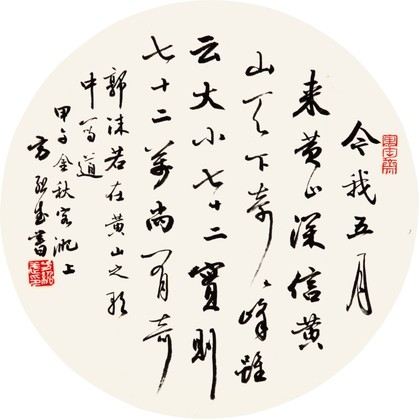 今我五月
来黄山深信黄
山天下奇々峰雖
云大小七十二實則
七十二萬尚有奇
郭沫若在黄山之歌
中写道
甲午金秋客沘上
方書